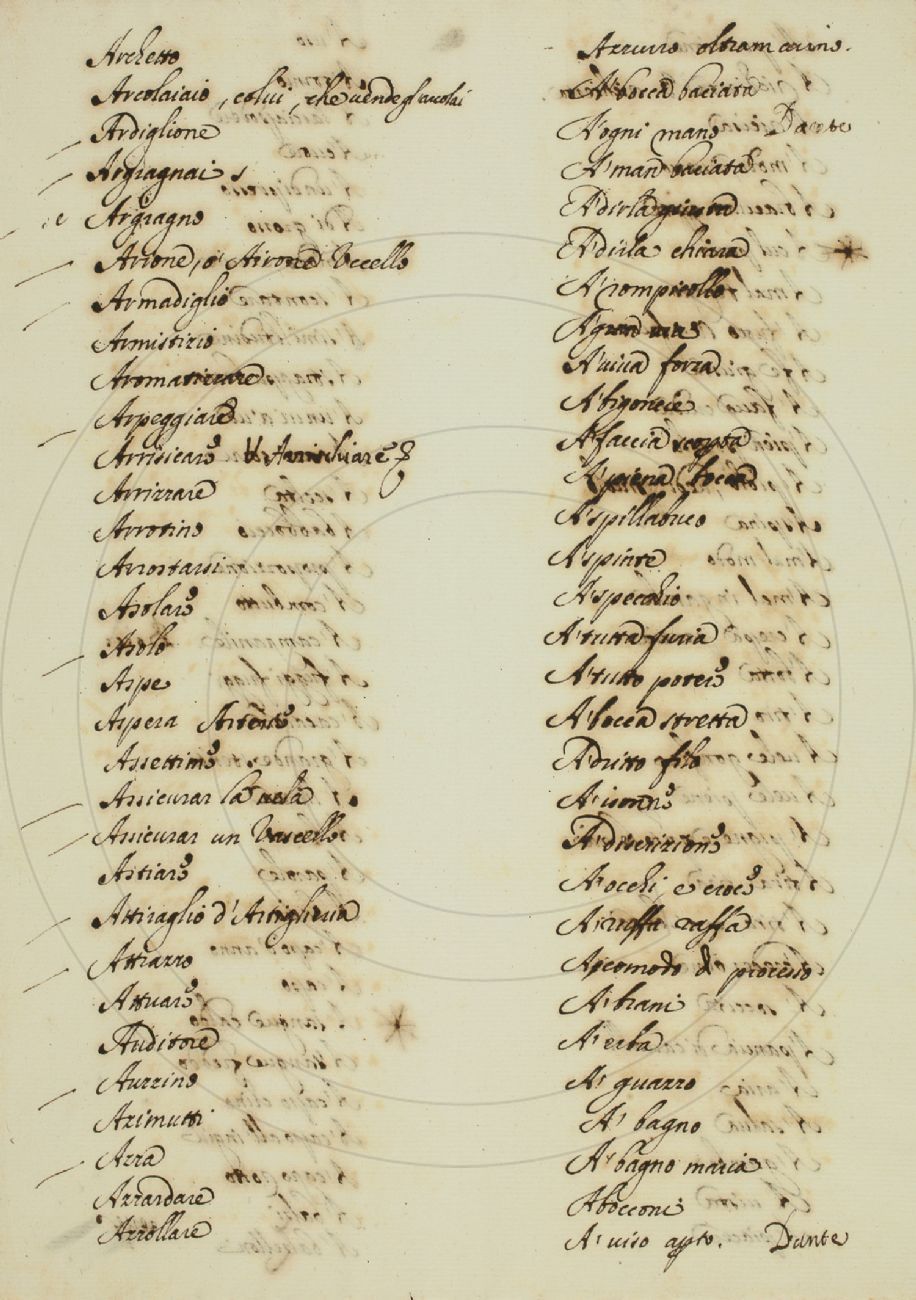 Archetto
Arcolaiaio, colui, che vende gl'arcolai
Ardiglione
Argagnai
Argagno
Arione, o' Airone Uccello
Armadiglio
Armistizio
Aromatizzare
Arpeggiare
Arrisicare V. Arrischiare
Arrizzare
Arrotino
Arrostarsi
Asolare
Asolo
Aspe
Aspera Arteria
Assettime
Assicurar la vela
Assicurar un Vascello
Astiare
Attiraglio d'Artiglieria
Attizzo
Attuare
Auditore
Auzzino
Azimutti
Azza
Azzardare
Azzollare
Azzurro oltramarino.
A' bocca baciata
A' ogni mano Dante
A' man baciata
A dirla giusta
A dirla chiara
A' rompicollo
A' gran
A' viva forza
A' bigoncie
A' faccia scoperta
A' piena bocca
A' spillabuco
A' spinte
A' specchio
A' tutta furia
A' tutto potere
A' bocca stretta
A dritto filo
A' isonne
A' discrizione
A' occhi, e croce
A' ruffa raffa
A comodo di processo
A' brani
A' erba
A' guazzo
A' bagno
A' bagno maria
A bocconi
A' viso apto. Dante